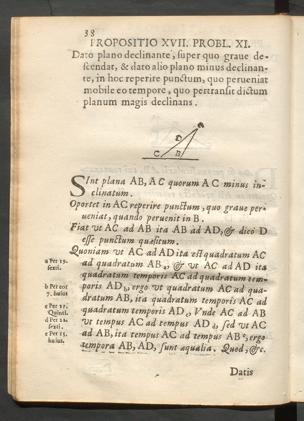 38
PROPOSITIO XVII. PROBL. XI.
Dato plano declinante, super quo graue de-
scendat, & dato alio plano minus declinan-
te, in hoc reperire punctum, quo perueniat
mobile eo tempore, quo pertransit dictum
planum magis declinans.
A
D
C B
SInt plana AB, AC quorum AC minus in-
clinatum.
Oportet in AC reperire punctum, quo graue per-
ueniat, quando peruenit in B.
Fiat vt AC ad AB ita AB ad AD, & dico D
esse punctum quæsitum.
Quoniam vt AC ad AD ita est quadratum AC
a Per 19.
sexti.
ad quadratum AB a, & vt AC ad AD ita
quadratum temporis AC ad quadratum tem-
b Per
7. huius
poris AD b, ergo vt quadratum AC ad qua-
dratum AB, ita quadratum temporis AC ad
c Per
Quinti.
quadratum temporis AD c, Vnde AC ad AB
d Per 22.
sexti.
vt tempus AC ad tempus AD d, sed vt AC
e Per 15.
huius.
ad AB, ita tempus AC ad tempus AB e, ergo
tempora AB, AD, sunt æqualia. Quod, &c.
Datis